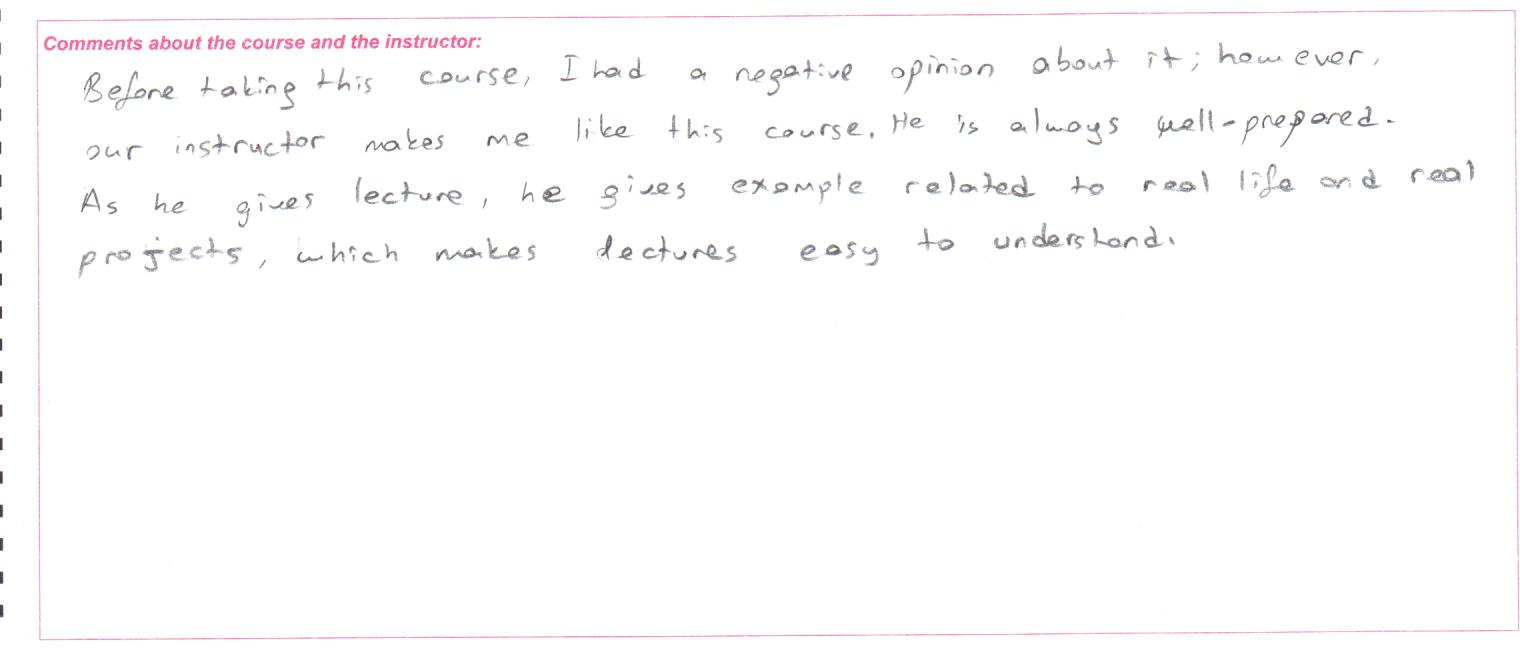 Comments about the course and the instructor:
Before taking this course, I had a negative opinion about it; however,
our instructor makes me like this course. He is always well-prepared.
As he gives lecture, he gives example related to real life and real
projects, which makes lectures easy to understand.